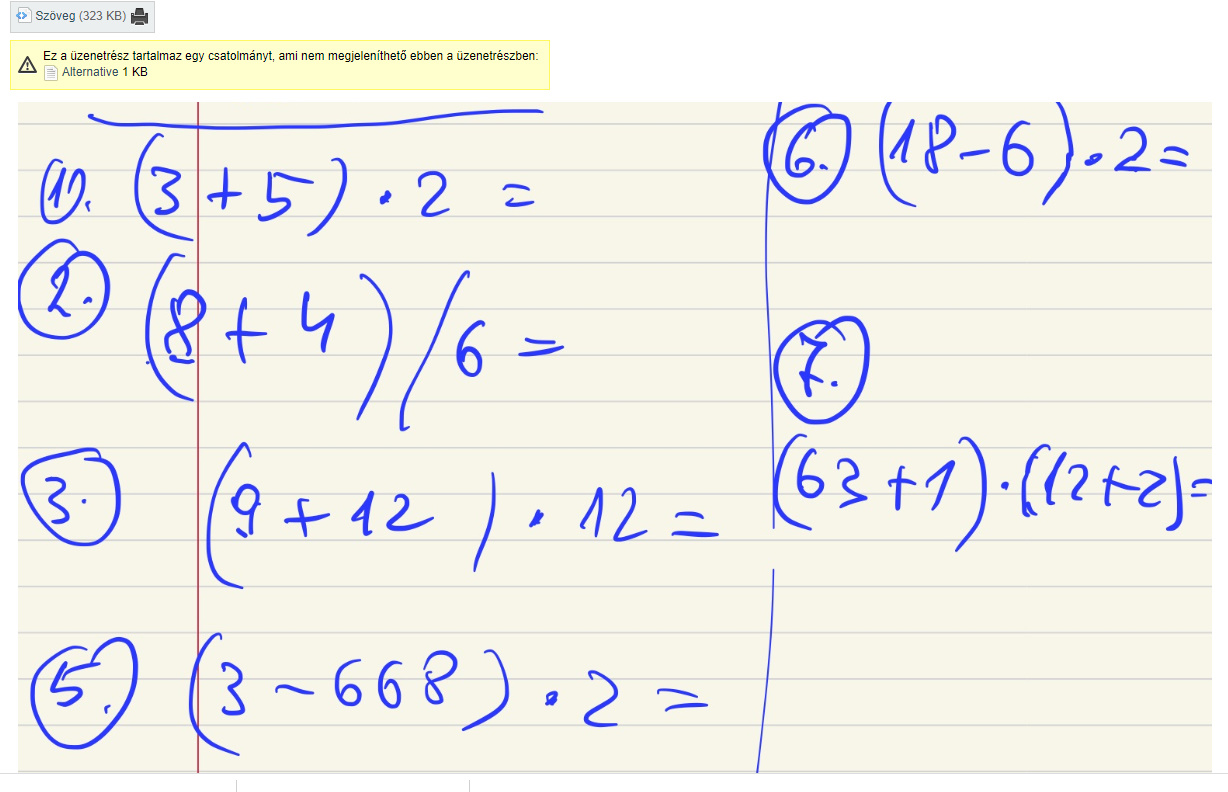 Szöveg (323 KB)
Ez a üzenetrész tartalmaz egy csatolmányt, ami nem megjeleníthető ebben a üzenetrészben:
Alternative 1 KB
1). (3+5)·2=
2. (8+4)/6=
3. (9+12)·12=
5. (3-668)·2=
6. (18-6)·2=
7.
(63+1)·(12+2)=